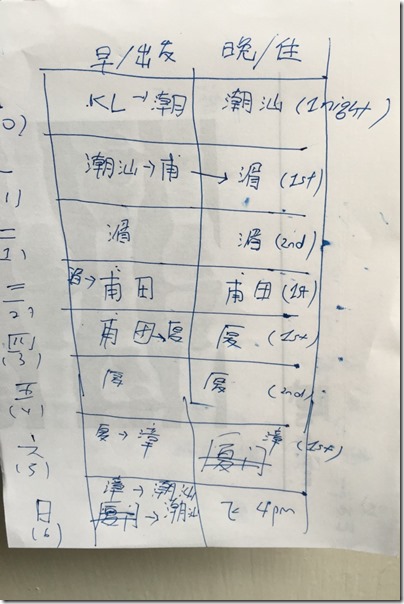 早/出发 晚/住
KL→潮 潮汕 (1night)
0)
潮汕→莆 → 湄 (1st)
1)
湄 湄 (2nd)
二
1)
湄→莆田 莆田 (1st)
三
2)
莆田→厦 厦 (1st)
四
(3)
厦 厦 (2nd)
五
(4)
厦→漳 厦门 漳 (1st)
六
(5)
漳→潮汕
厦门→潮汕 飞 4pm
日
(6)